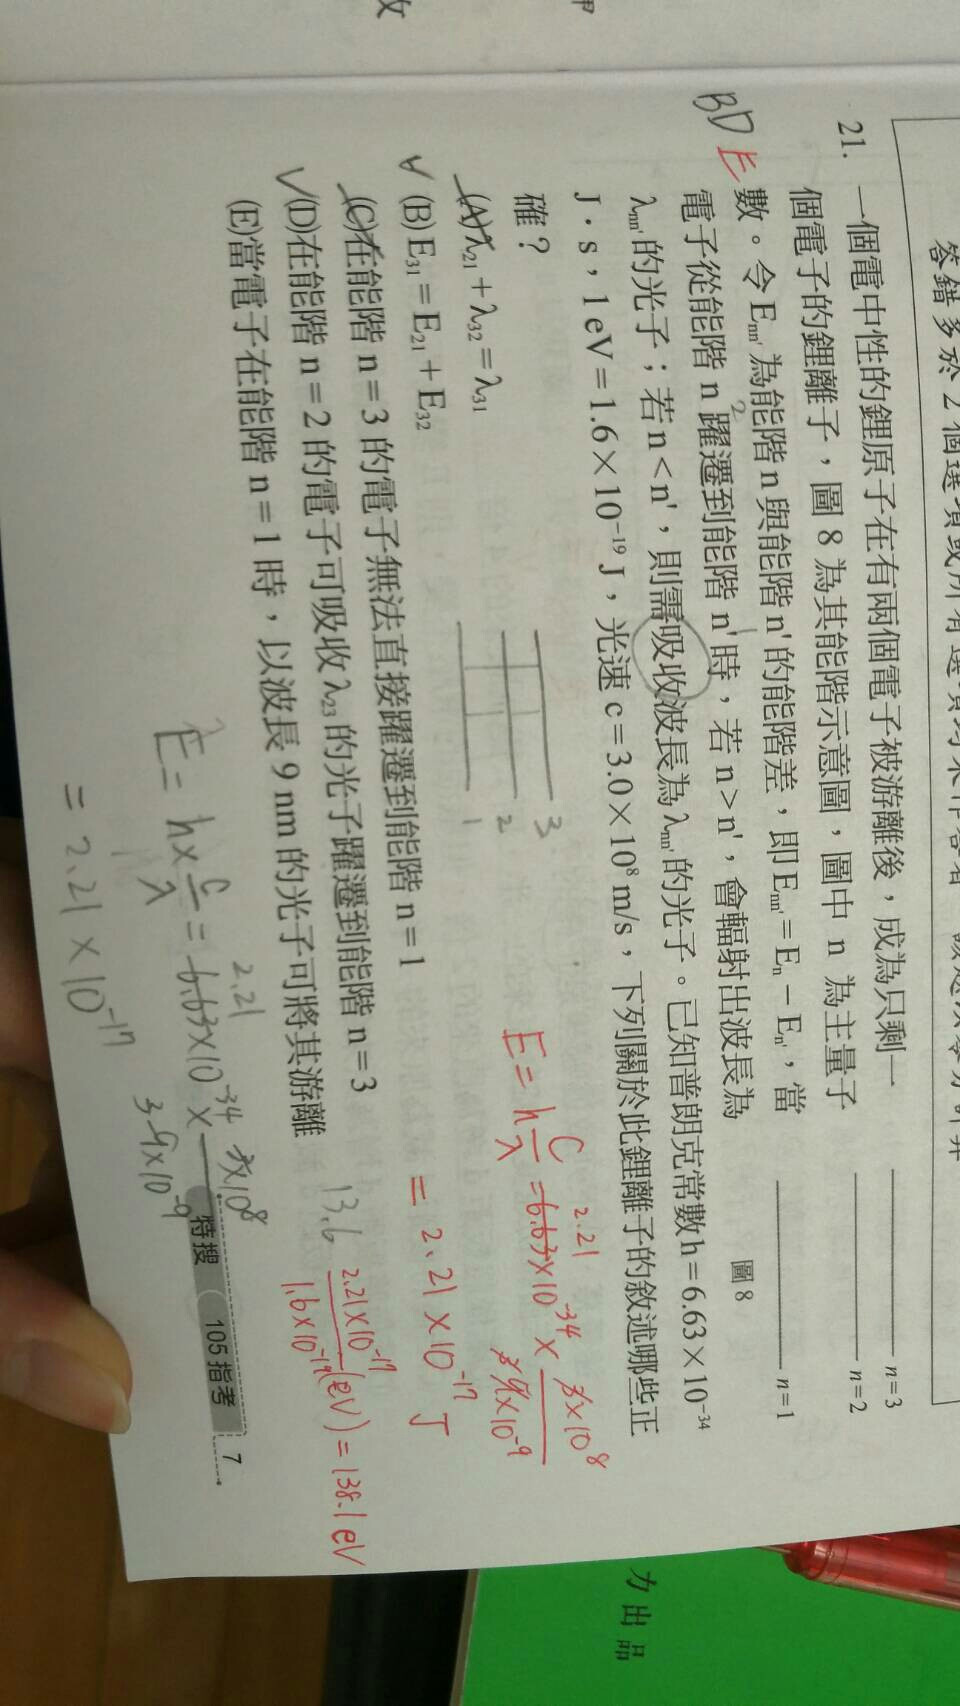 答錯多於2個選項或所有選項均未作答者，該題以零分計算
21. 一個電中性的鋰原子在有兩個電子被游離後，成為只剩一
個電子的鋰離子，圖8為其能階示意圖，圖中 n 為主量子
數。令Eₙₙ'為能階n與能階n'的能階差，即Eₙₙ'=Eₙ－Eₙ'，當
電子從能階 n 躍遷到能階 n'時，若n>n'，會輻射出波長為
λₙₙ'的光子；若n<n'，則需吸收波長為λₙₙ'的光子。已知普朗克常數h=6.63×10⁻³⁴
J·s，1eV=1.6×10⁻¹⁹J，光速c=3.0×10⁸m/s，下列關於此鋰離子的敘述哪些正
確？
(A)λ₂₁+λ₃₂=λ₃₁
(B)E₃₁=E₂₁+E₃₂
(C)在能階n=3的電子無法直接躍遷到能階n=1
(D)在能階n=2的電子可吸收λ₂₃的光子躍遷到能階n=3
(E)當電子在能階n=1時，以波長9nm的光子可將其游離
n=3
n=2
n=1
圖8
BD E
2
1
3
2
1
E=h c/λ = 6.63×10⁻³⁴ × 3×10⁸ / 9×10⁻⁹
2.21
3
= 2.21×10⁻¹⁷ J
13.6
2.21×10⁻¹⁷ / 1.6×10⁻¹⁹ (eV) = 138.1 eV
E = h× c/λ = 6.63×10⁻³⁴ × 3×10⁸ / 9×10⁻⁹
2.21
3
= 2.21×10⁻¹⁷
特搜 105指考 7
力出品